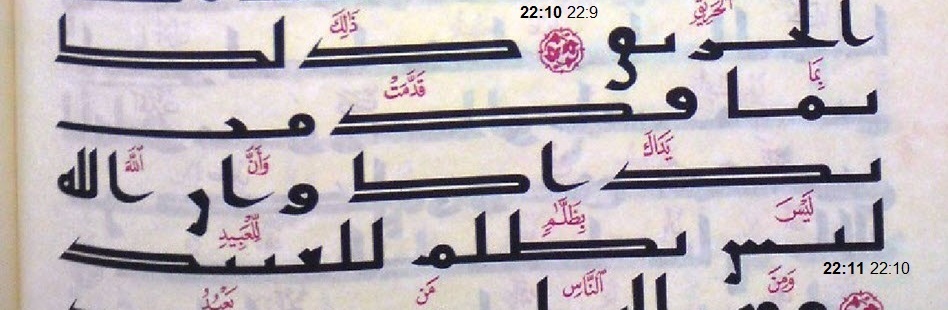 22:10 22:9
الْحَرِيقِ ذَٰلِكَ
الحريق ذلك
بِمَا قَدَّمَتْ
بما قدمت
يَدَاكَ وَأَنَّ ٱللَّهَ
يداك وأن الله
لَيْسَ بِظَلَّٰمٍ لِّلْعَبِيدِ
ليس بظلم للعبيد
22:11 22:10
وَمِنَ ٱلنَّاسِ مَن يَعْبُدُ